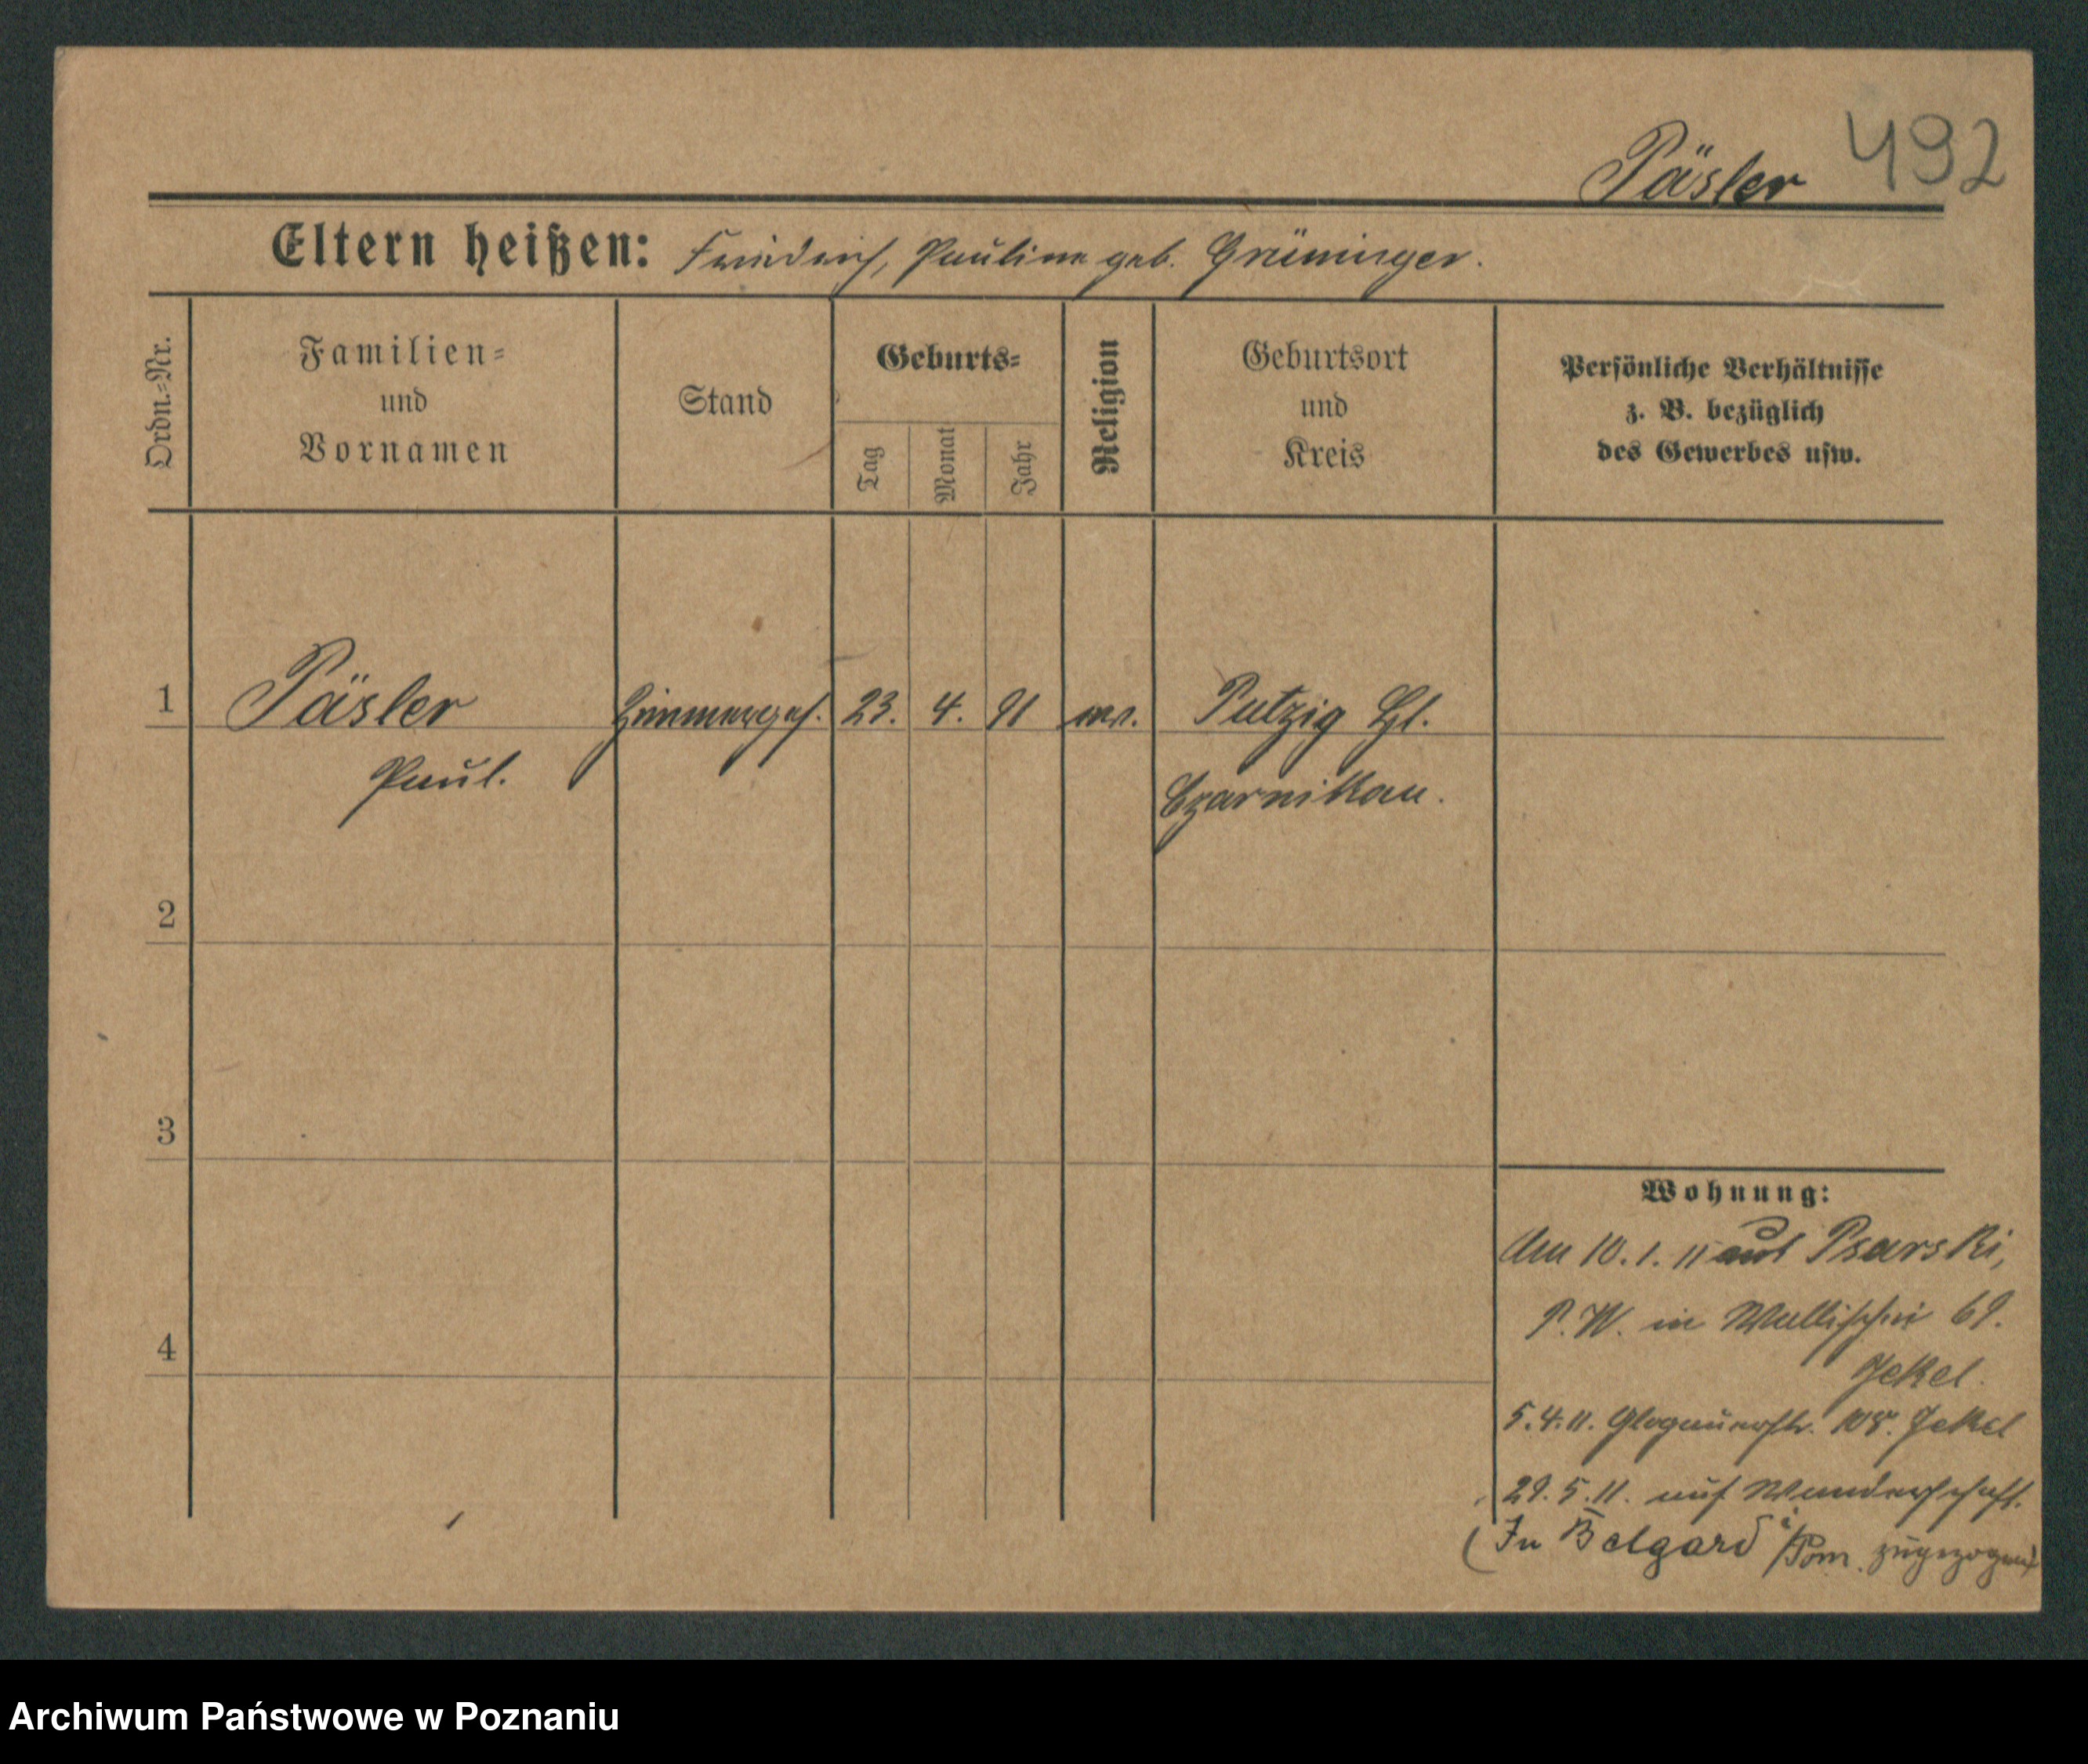 Päsler 492
Eltern heißen: Friedrich, Pauline geb. Grüninger.
Ordn.-Nr.
Familien-
und
Vornamen
Stand
Geburts-
Tag
Monat
Jahr
Religion
Geburtsort
und
Kreis
Persönliche Verhältnisse
z. B. bezüglich
des Gewerbes usw.
1 Päsler Zimmerges. 23. 4. 91 ev. Putzig
Paul. Czarnikau.
2
3
4
Wohnung:
Am 10. 1. 11 aus Psarski,
P. W. in Wallischei 69.
Jekel.
5. 4. 11. Glogauerstr. 108. Jekel
29. 5. 11. auf Wanderschaft.
(In Belgard i/Pom. zugezogen)
Archiwum Państwowe w Poznaniu